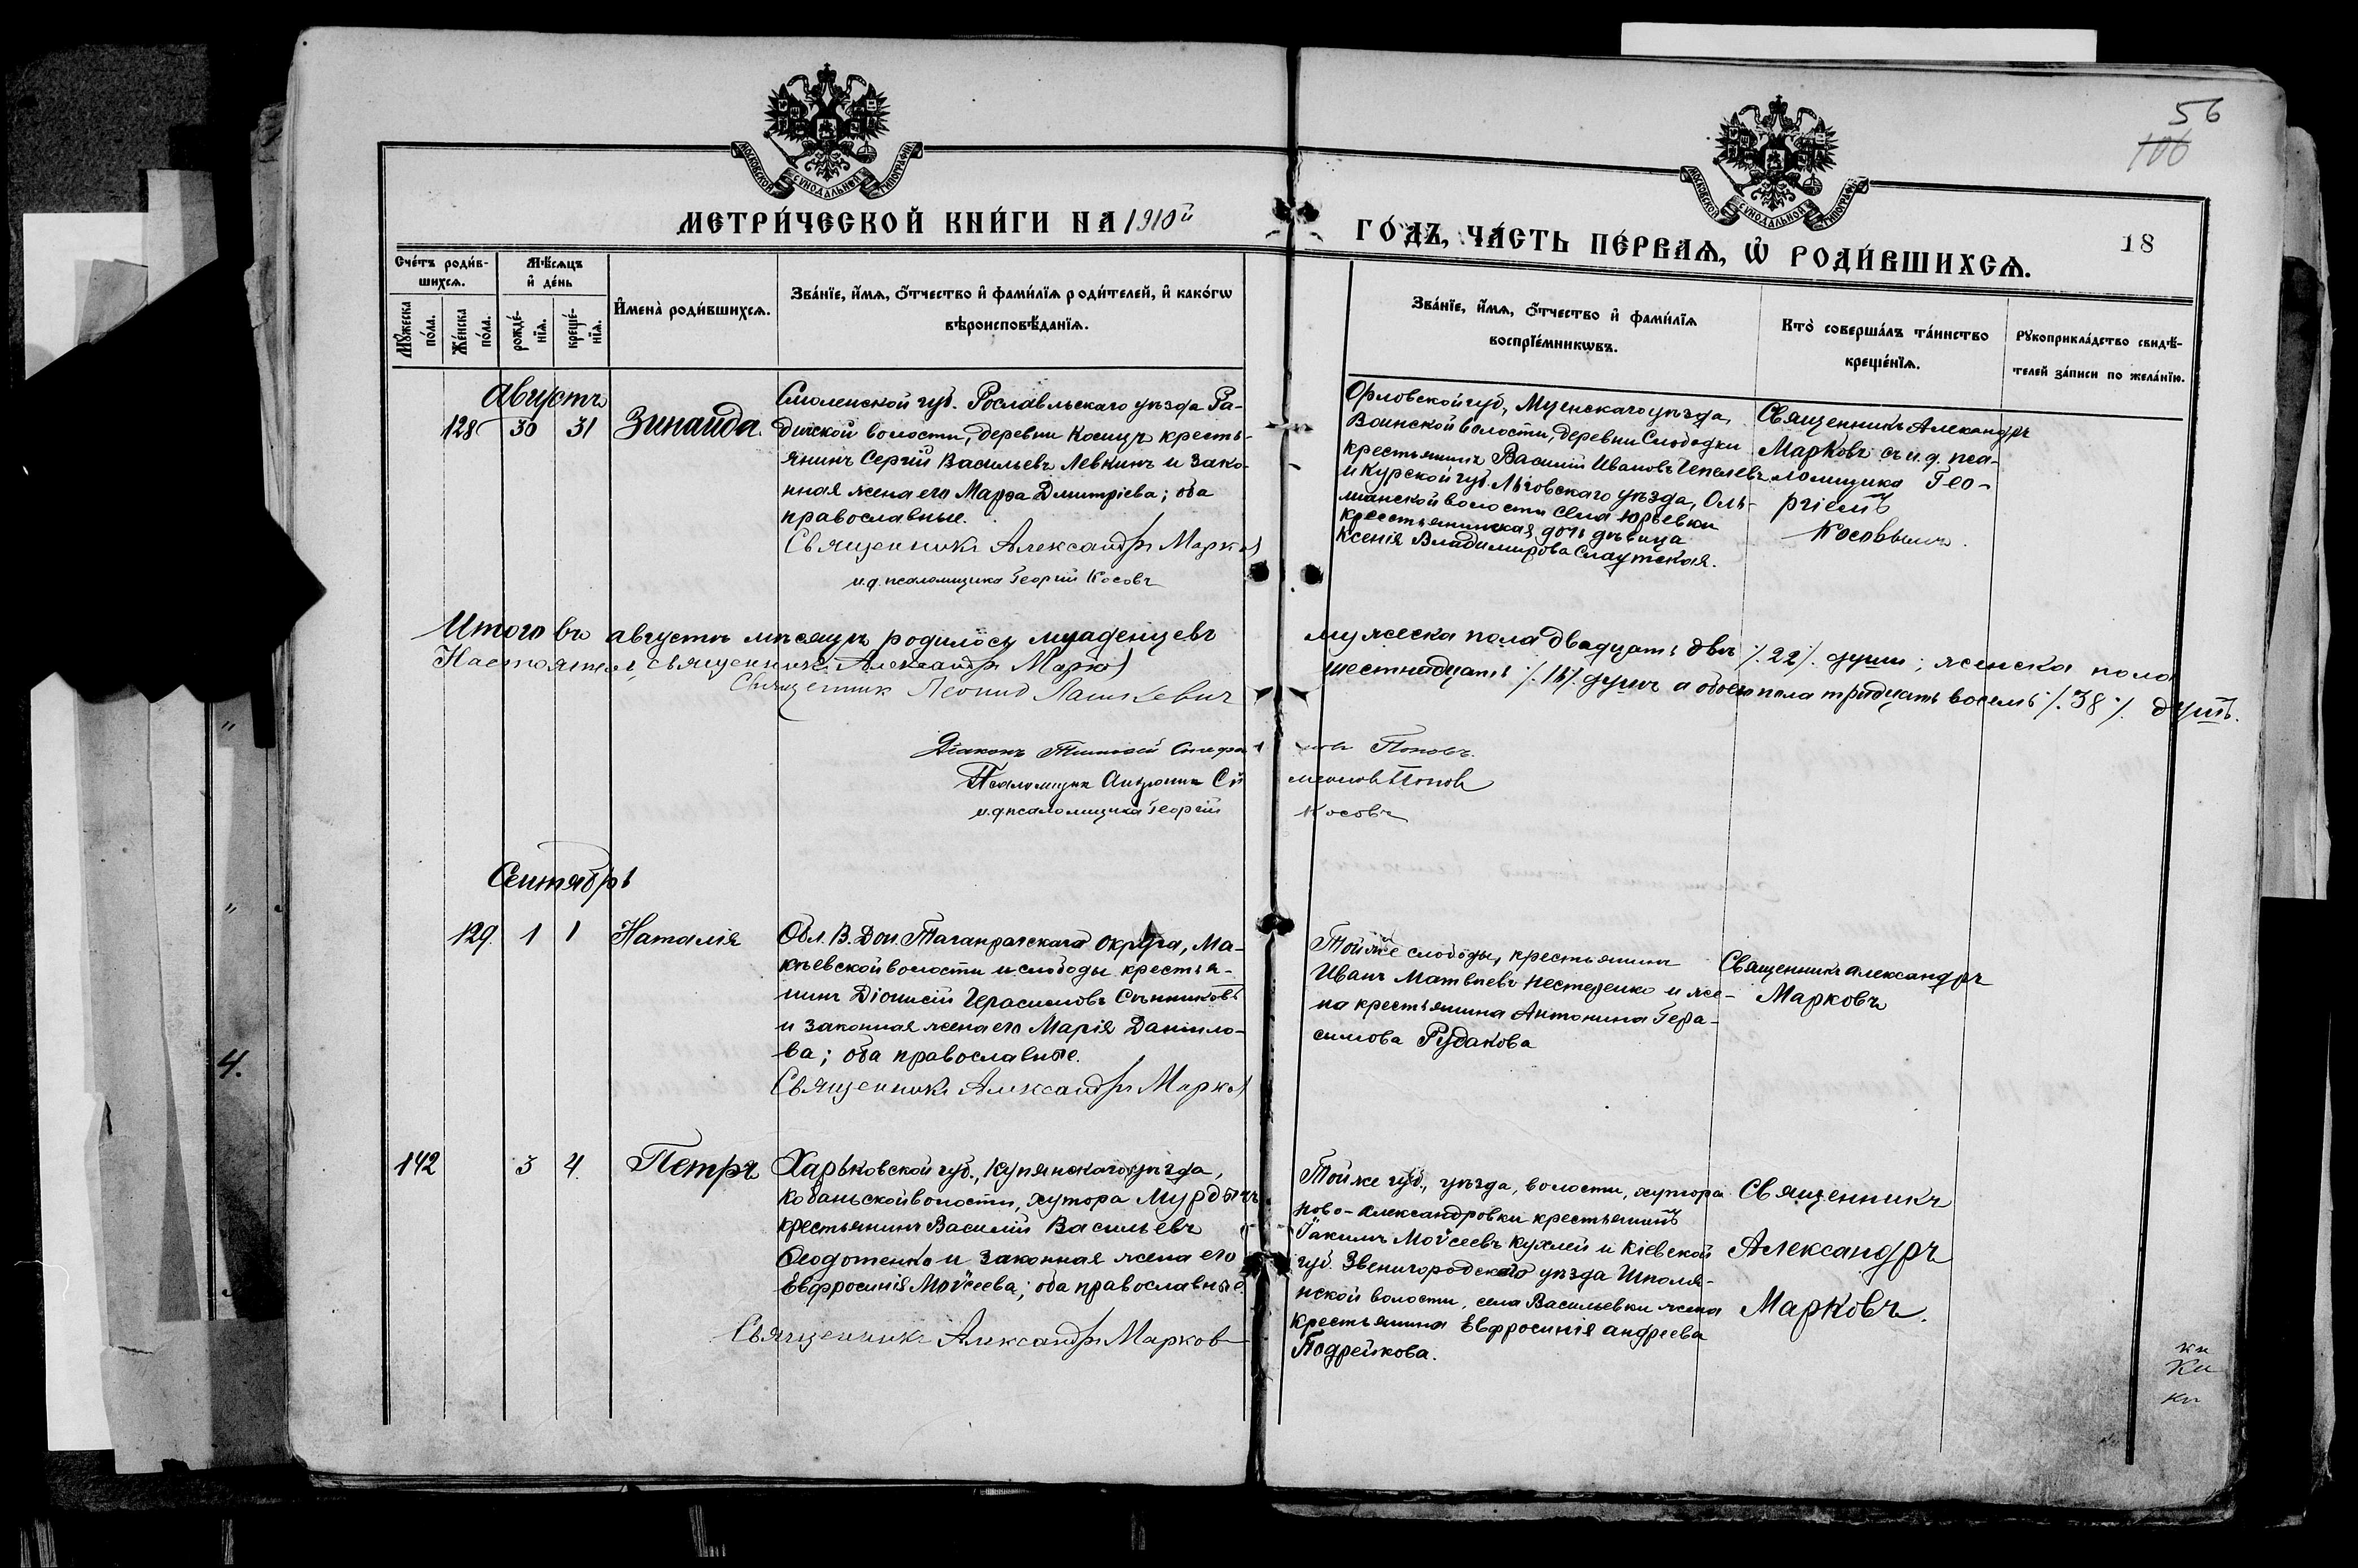 56
106
МОСКОВСКОЙ СѴНОДАЛЬНОЙ ТИПОГРАФІИ
МОСКОВСКОЙ СѴНОДАЛЬНОЙ ТИПОГРАФІИ
МЕТРИ́ЧЕСКОЙ КНИ́ГИ НА 1910й
ГО́ДЪ, ЧА́СТЬ ПЕ́РВАѦ, Ѡ҆ РОДИ́ВШИХСѦ.
18
Сче́тъ роди́в-
шихсѧ.
Мꙋ́жеска по́ла.
Же́нска по́ла.
Мѣ́сѧцъ
и҆ де́нь
рожде́-нїѧ.
креще́-нїѧ.
И҆мена̀ роди́вшихсѧ.
Зва́нїе, и҆́мѧ, ѻ҆́тчество и҆ фами́лїѧ роди́телей, и҆ како́гѡ
вѣроисповѣ́данїѧ.
Зва́нїе, и҆́мѧ, ѻ҆́тчество и҆ фами́лїѧ
воспрїе́мникѡвъ.
Кто̀ соверша́лъ та́инство
креще́нїѧ.
Рꙋкоприкла́дство свидѣ́-
телей за́писи по жела́нїю.
Августъ
128 30 31 Зинаида.
Смоленской губ. Рославльскаго уѣзда Ра-
дичской волости, деревни Косицъ кресть-
янинъ Сергій Васильевъ Левкинъ и зако-
нная жена его Марѳа Дмитріева; оба
православные.
Священникъ Александръ Марков
и.д. псаломщика Георгій Косовъ
Орловской губ., Мценскаго уѣзда,
Воинской волости, деревни Слободки
крестьянинъ Василій Ивановъ
и Курской губ. Льговскаго уѣзда, Оль-
шанской волости села Юрьевки
крестьянинская дочь дѣвица
Ксенія Владимирова Слаутская.
Священникъ Александръ
Марковъ съ и.д. пса-
ломщика Гео-
ргіемъ
Косовымъ.
Итого въ августѣ мѣсяцѣ родилось младенцевъ
мужеска пола двадцать двѣ /.22/. души; женска пола
шестнадцать /.16/. душъ а обоего пола тридцать восемь /.38/. душъ.
Настоятель, священникъ Александръ Марков
Священник Леонид Лашкевич
Діаконъ Тимофей Стефановъ Поповъ.
Псаломщик Антонин Симеонов Попов
и.д. псаломщика Георгій Косовъ
Сентябрь
129. 1 1 Наталія
Обл. В. Дон. Таганрогскаго округа, Ма-
кѣевской волости и слободы крестья-
нинъ Діонисій Герасимовъ Сѣнниковъ
и законная жена его Марія Данило-
ва; оба православные.
Священникъ Александръ Марков
Той же слободы, крестьянинъ
Иванъ Матвѣевъ Нестеренко и же-
на крестьянина Антонина Гера-
симова Рудакова
Священникъ Александръ
Марковъ
142 3 4. Петръ
Харьковской губ., Купянскаго уѣзда,
Кабаньской волости, хутора
крестьянинъ Василій Васильевъ
Ѳедотенко и законная жена его
Евфросинія Моѵсеева; оба православные.
Священникъ Александръ Марков
Той же губ., уѣзда, волости, хутора
Ново-Александровки крестьянинъ
Іакимъ Моѵсеевъ Кухлей и Кіевской
губ. Звенигородскаго уѣзда Шполя-
нской волости, села Васильевки жена
крестьянина Евфросинія Андреева
Подрейкова.
Священникъ
Александръ
Марковъ.
кн
Кн
кн
4.